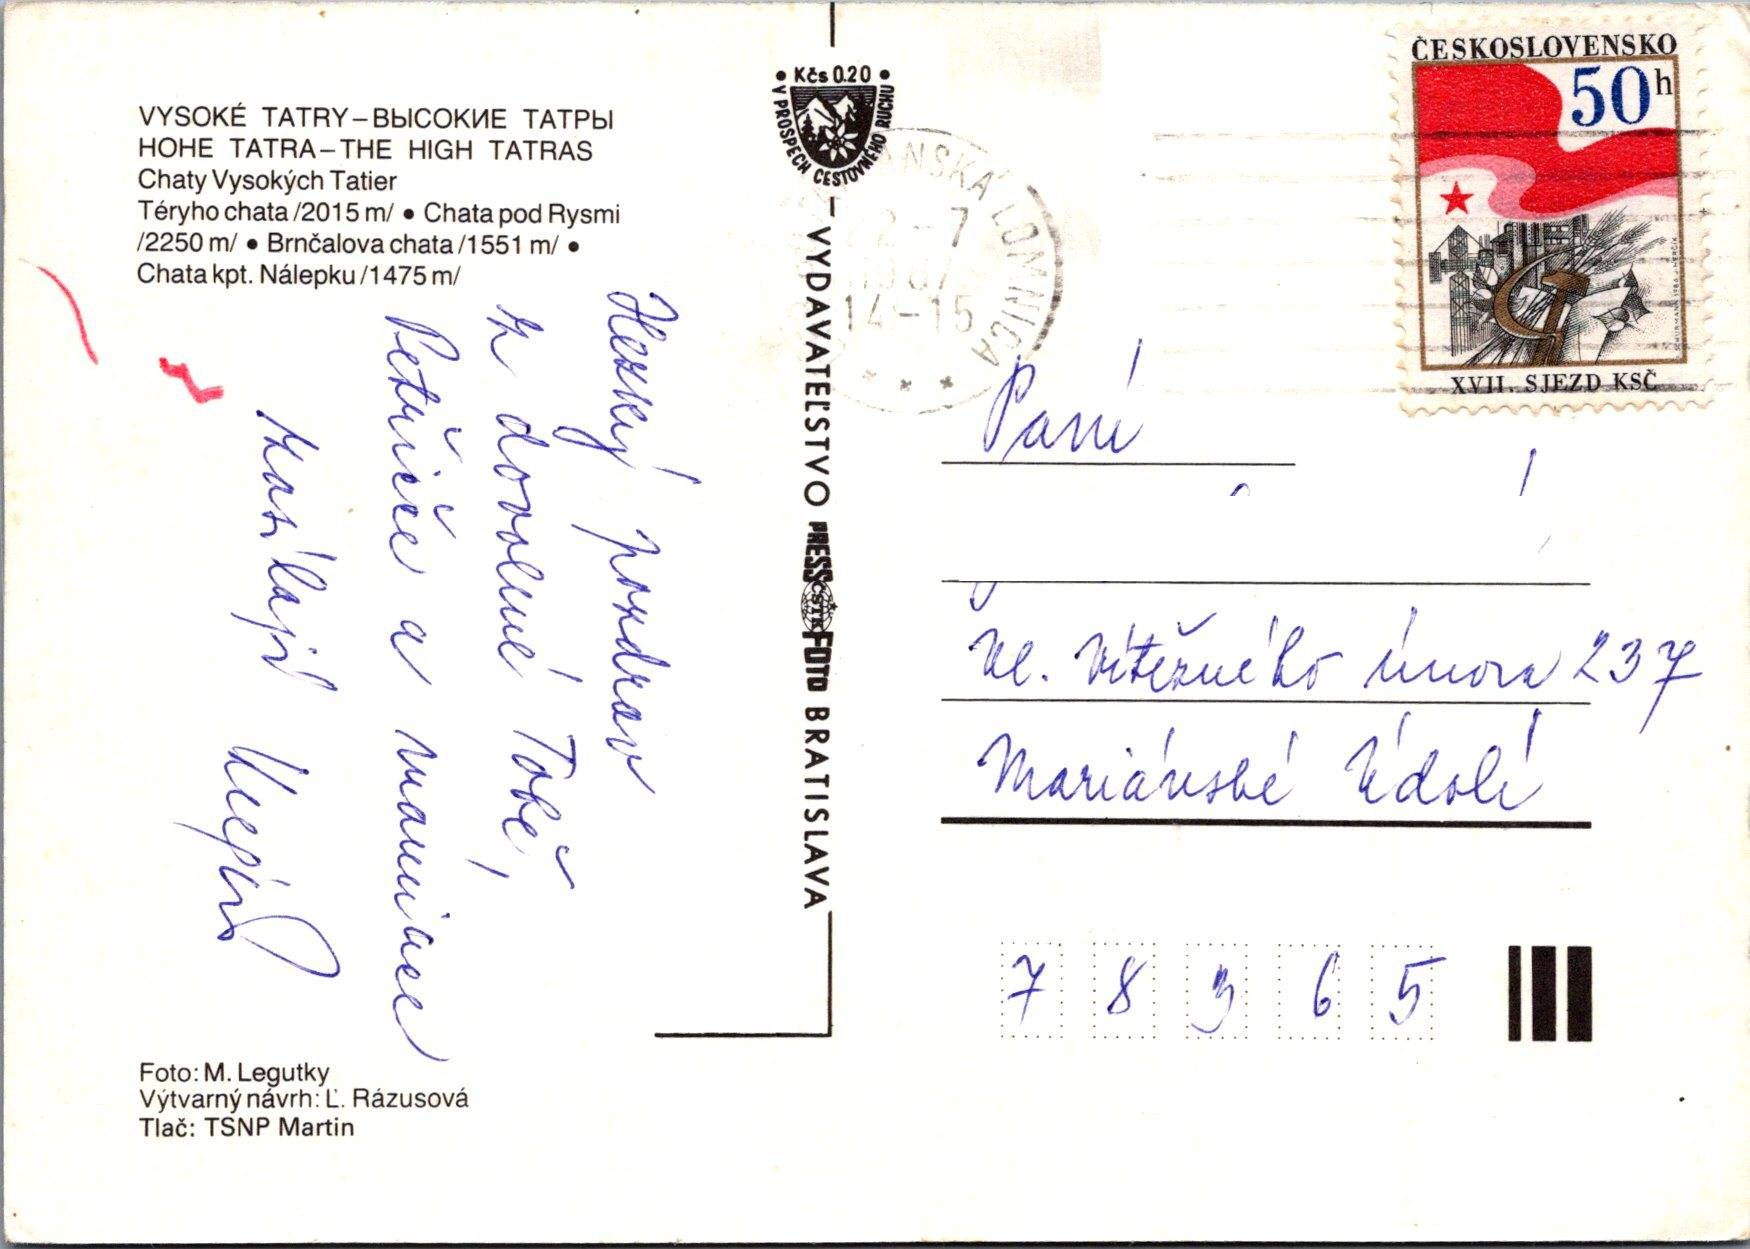 VYSOKÉ TATRY – ВЫСОКИЕ ТАТРЫ
HOHE TATRA – THE HIGH TATRAS
Chaty Vysokých Tatier
Téryho chata /2015 m/ • Chata pod Rysmi
/2250 m/ • Brnčalova chata /1551 m/ •
Chata kpt. Nálepku /1475 m/
Hezký pozdrav
z dovolené Tobě,
Petričce a mamince
zasílají
Foto: M. Legutky
Výtvarný návrh: Ľ. Rázusová
Tlač: TSNP Martin
• Kčs 0.20 •
V PROSPECH CESTOVNÉHO RUCHU
VYDAVATEĽSTVO PRESSFOTO BRATISLAVA
ČSTK
LOMNICA
14-15
ČESKOSLOVENSKO
50 h
XVII. SJEZD KSČ
Paní
Ul. Vítězného února 237
Mariánské Údolí
7 8 3 6 5